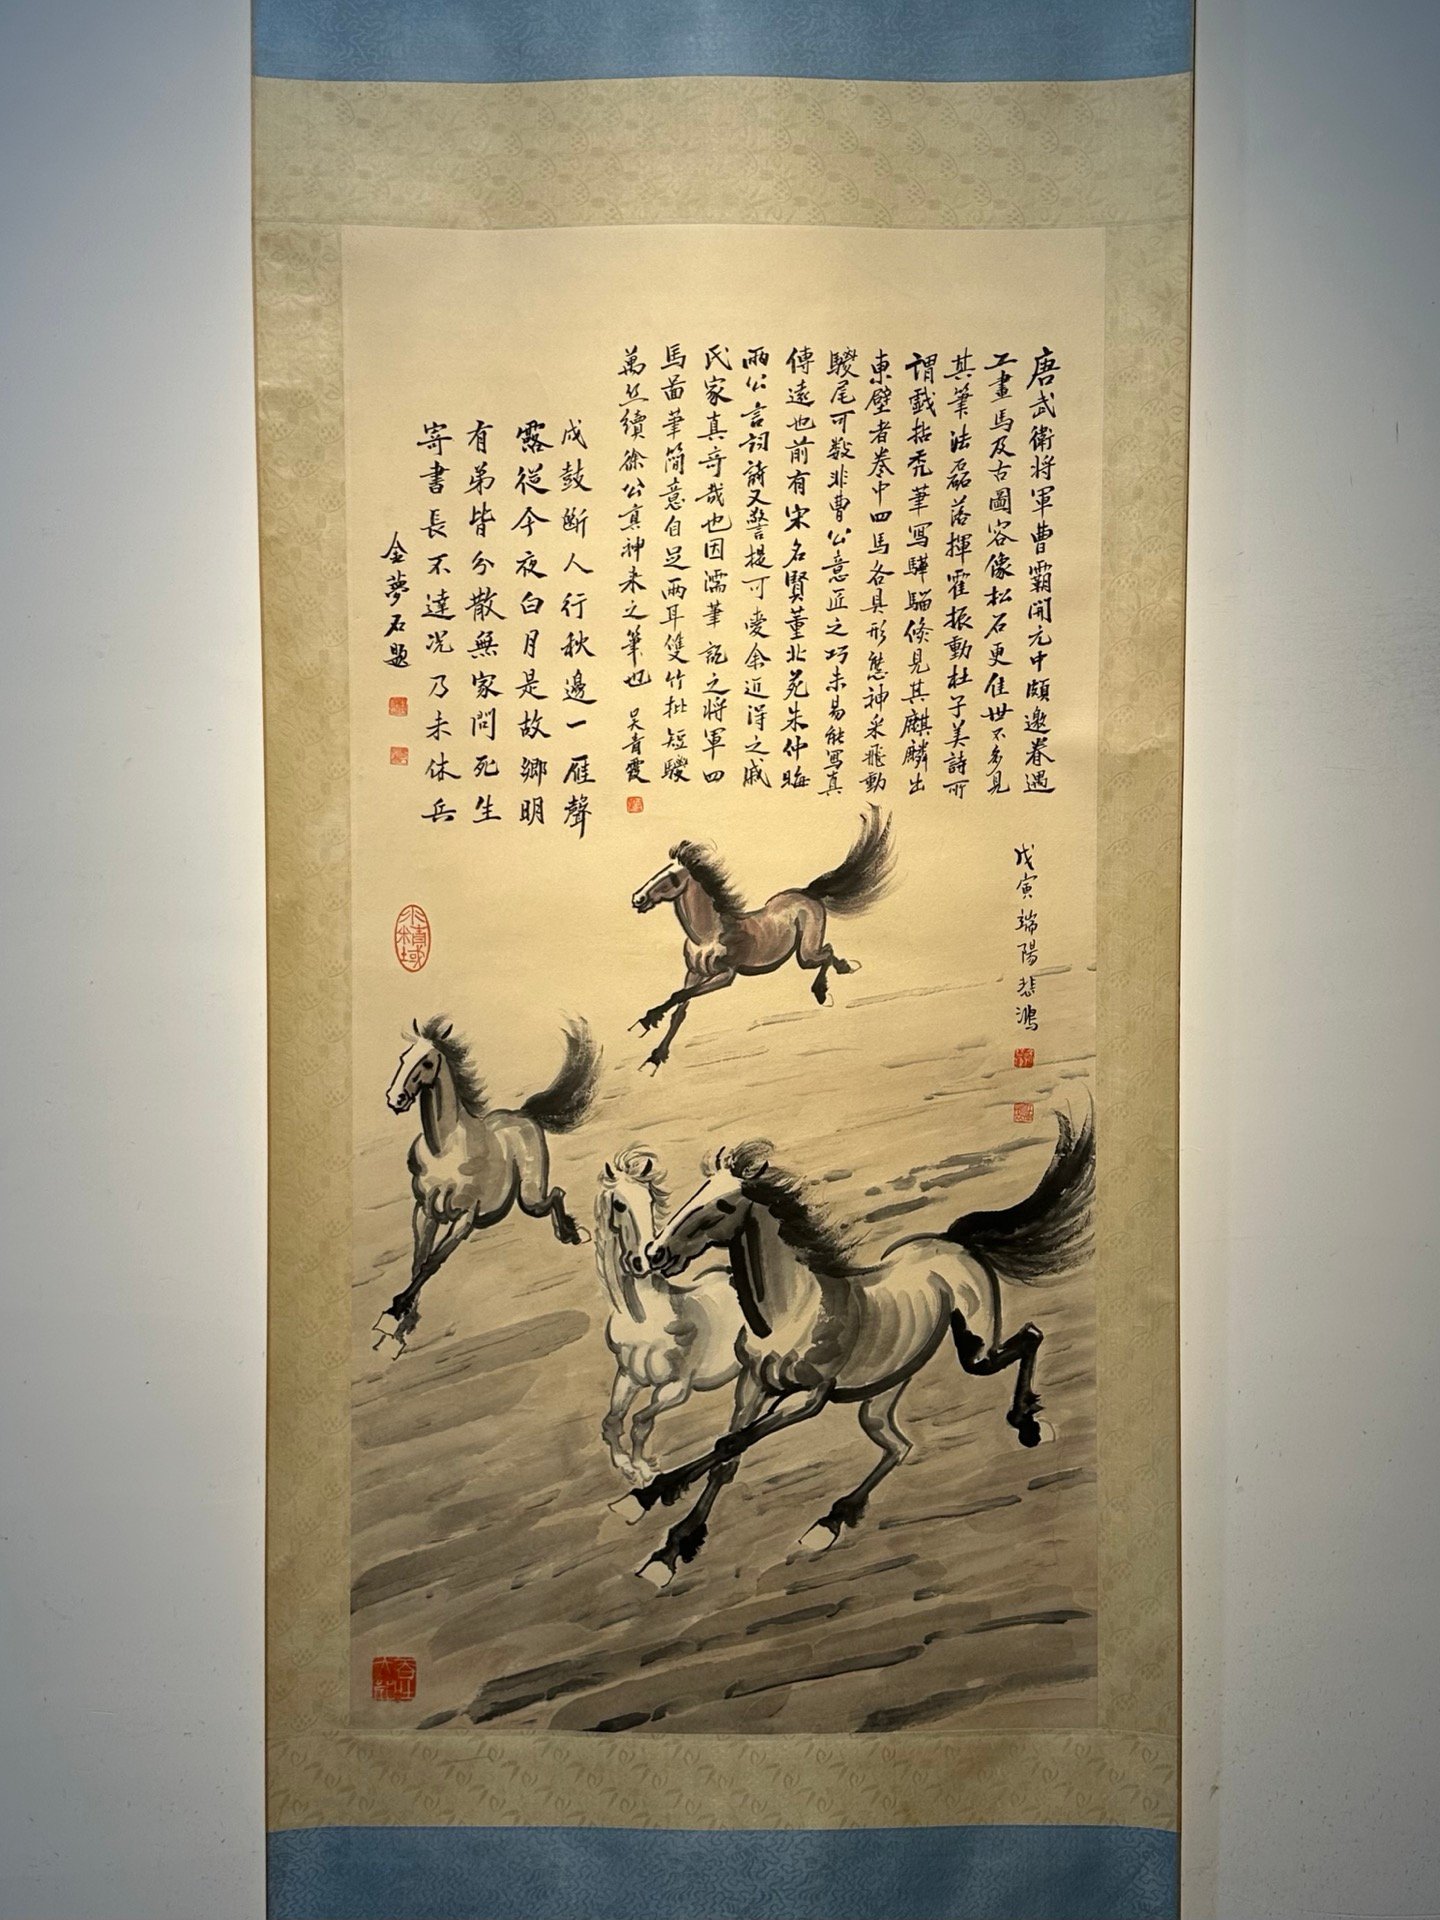 唐武衛将軍曹霸開元中頗邀眷遇
工畫馬及古圖容像松石更佳世不多見
其筆法磊落揮霍振動杜子美詩所
謂戲拈禿筆寫驊騮倏見其麒麟出
東壁者卷中四馬各具形態神采飛動
騣尾可數非曹公意匠之巧未易能寫真
傳遠也前有宋名賢董北苑朱仲晦
兩公言詞詩又警提可愛余近得之戚
氏家真奇哉也因濡筆記之将軍四
馬啚筆簡意自足兩耳雙竹批短騣
萬丝續徐公真神来之筆也 吴青霞
戍鼓斷人行秋邊一雁聲
露從今夜白月是故鄉明
有弟皆分散無家問死生
寄書長不達况乃未休兵
金夢石題
戊寅端陽悲鴻